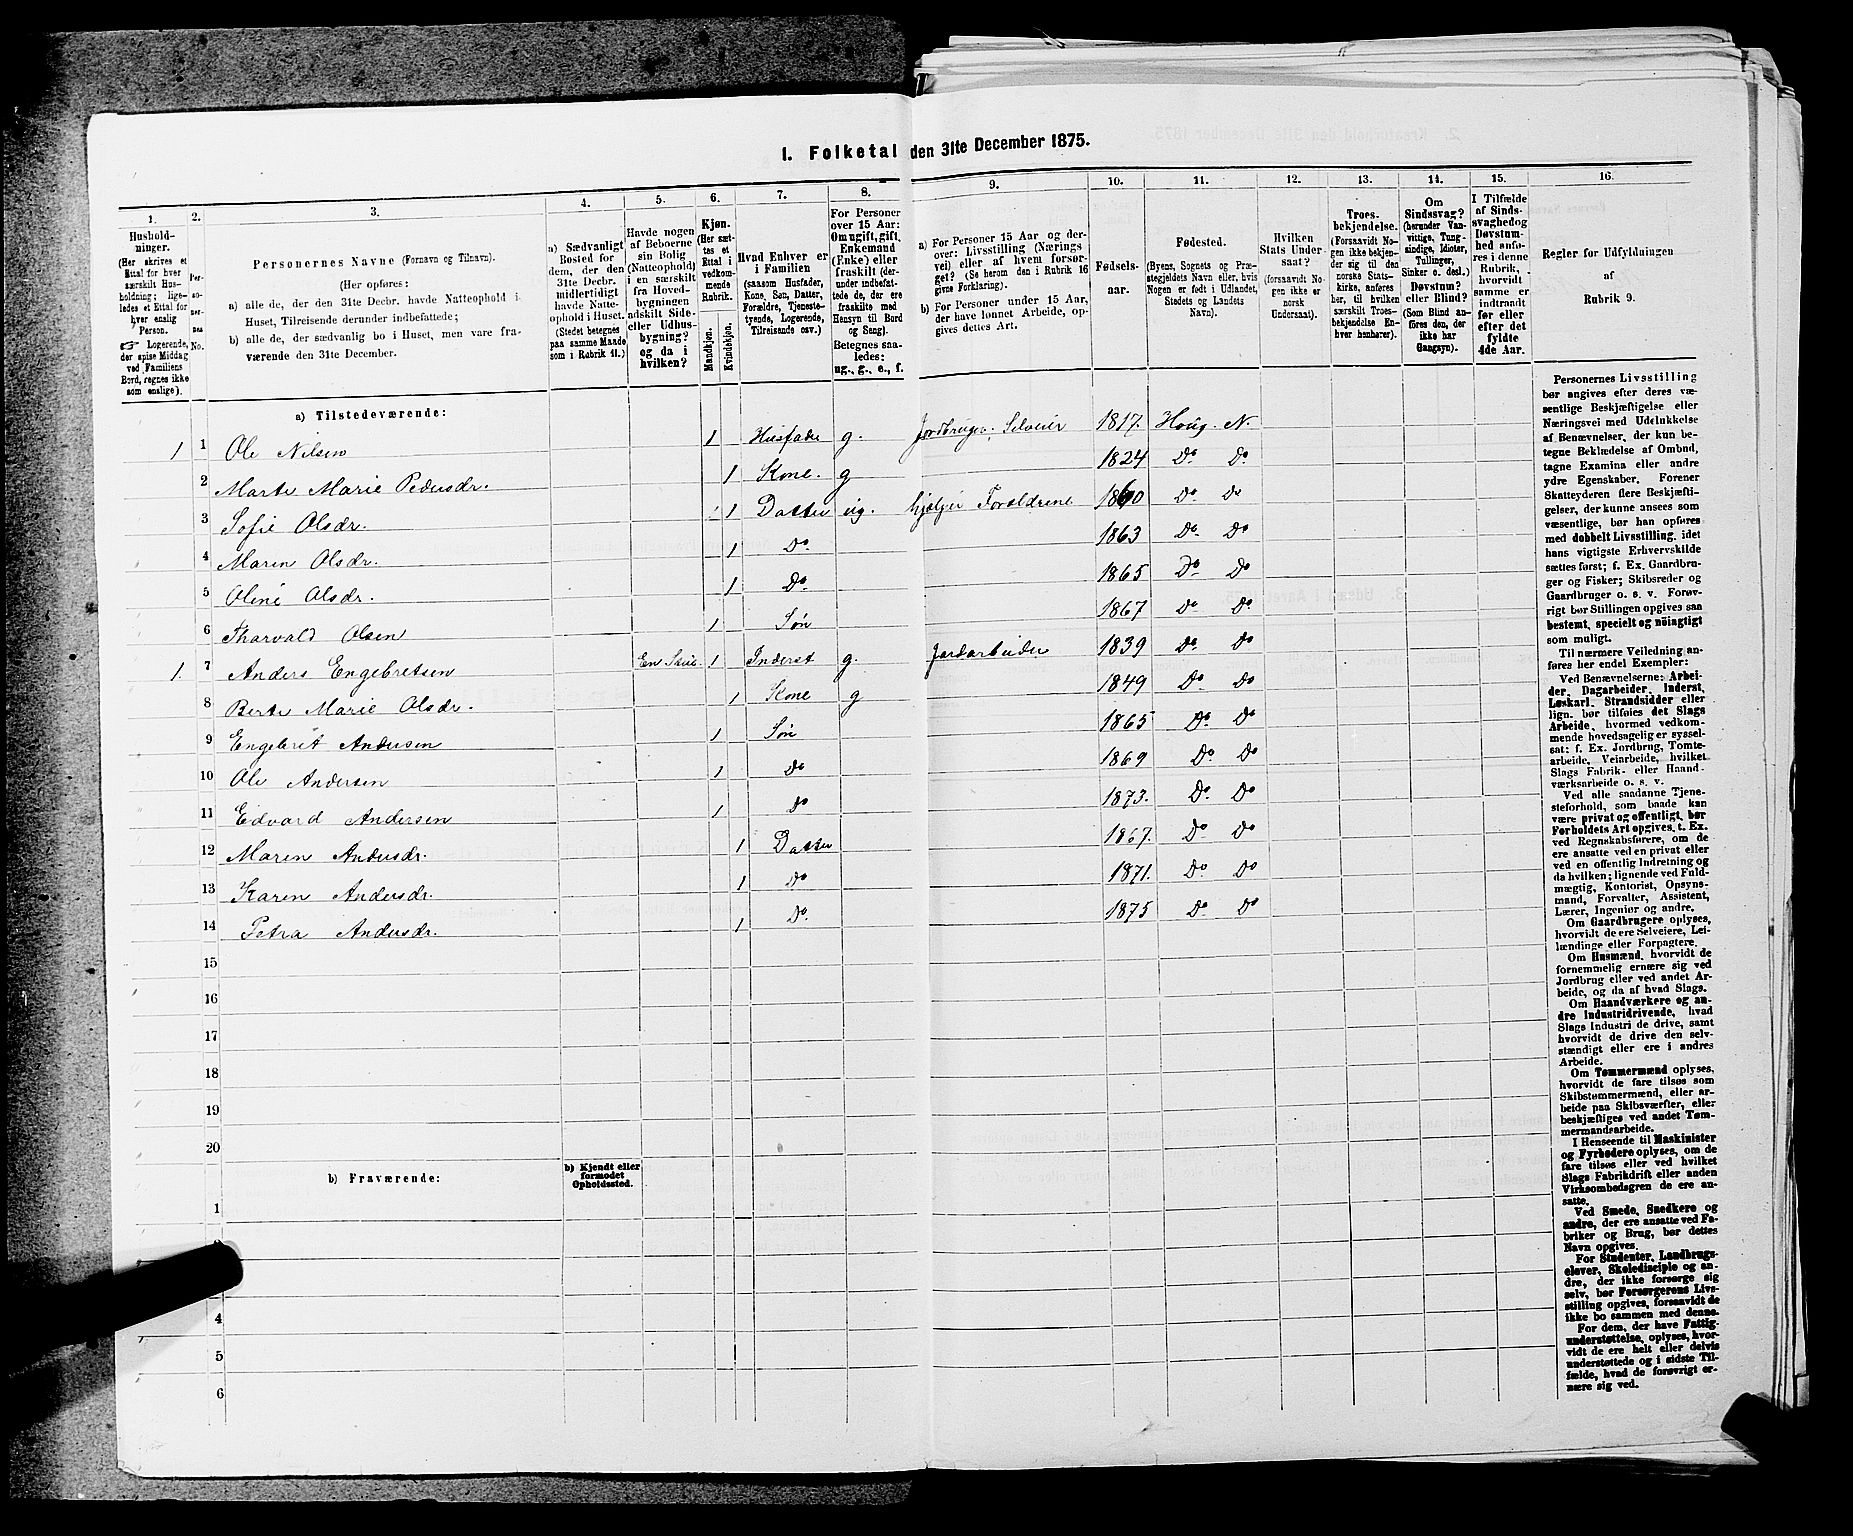 I. Folketal den 31te December 1875.
1. 2. 3. 4. 5. 6. 7. 8. 9. 10. 11. 12. 13. 14. 15. 16.
Husholdninger.
(Her skrives et Ettal for hver særskilt Husholdning; ligeledes et Ettal for hver enslig Person.
☞ Logerende, der spise Middag ved Familiens Bord, regnes ikke som enslige).
Personernes No.
Personernes Navne (Fornavn og Tilnavn).
(Her opføres:
a) alle de, der den 31te Decbr. havde Natteophold i Huset, Tilreisende derunder indbefattede;
b) alle de, der sædvanlig bo i Huset, men vare fraværende den 31te December.
a) Sædvanligt Bosted for dem, der den 31te Decbr. midlertidigt havde Natteophold i Huset.
(Stedet betegnes paa samme Maade som i Rubrik 11.)
Havde nogen af Beboerne sin Bolig (Natteophold) i en særskilt fra Hovedbygningen adskilt Side- eller Udhusbygning? og da i hvilken?
Kjøn.
(Her sættes et Ettal i vedkommende Rubrik.
Mandkjøn.
Kvindekjøn.
Hvad Enhver er i Familien
(saasom Husfader, Kone, Søn, Datter, Forældre, Tjenestetyende, Logerende, Tilreisende osv.)
For Personer over 15 Aar: Om ugift, gift, Enkemand (Enke) eller fraskilt (derunder indbefattede de, der ere fraskilte med Hensyn til Bord og Seng).
Betegnes saaledes: ug., g., e., f.
a) For Personer 15 Aar og derover: Livsstilling (Næringsvei) eller af hvem forsørget? (Se herom den i Rubrik 16 givne Forklaring).
b) For Personer under 15 Aar, der have lønnet Arbeide, opgives dettes Art.
Fødselsaar.
Fødested.
(Byens, Sognets og Præstegjeldets Navn eller, hvis Nogen er født i Udlandet, Stedets og Landets Navn).
Hvilken Stats Undersaat?
(forsaavidt Nogen ikke er norsk Undersaat).
Troesbekjendelse.
(Forsaavidt Nogen ikke bekjender sig til den norske Statskirke, anføres her, til hvilket særskilt Troesbekjendelse Enhver henhører).
Om Sindssvag?
(herunder Vanvittige, Tungsindige, Idioter, Tullinger, Sinker o. desl.)
Døvstum? eller Blind?
(Som Blind anføres den, der ikke har Gangsyn).
I Tilfælde af Sindssvaghed og Døvstumhed anføres i denne Rubrik, hvorvidt samme er indtraadt før eller efter det fyldte 4de Aar.
Regler for Udfyldningen
af
Rubrik 9.
a) Tilstedeværende:
1 1 Ole Nilsen 1 Husfader g. Jordbruger, Selveier 1817. Houg. N.
2 Marte Marie Pedersdr. 1 Kone. g 1824 Do Do
3 Sofie Olsdr. 1 Datter ug. hjelper Forældrene 1860 Do Do
4 Maren Olsdr. 1 Do. 1863 Do Do
5 Oline Olsdr. 1 Do 1865 Do Do
6 Tharvald Olsen 1 Søn 1867 Do Do
1. 7 Anders Engebretsen 1 Inderst g. Jordarbeider 1839 Do Do
8 Berte Marie Olsdr. 1 Kone g 1849 Do Do
9 Engebret Andersen 1 Søn 1865 Do Do
10 Ole Andersen 1 Do 1869 Do Do
11 Edvard Andersen 1 Do 1873. Do Do
12 Maren Andersdr. 1 Datter 1867. Do Do
13 Karen Andersdr. 1 Do 1871. Do Do
14 Petra Andersdr. 1 Do. 1875 Do Do
15
16
17
18
19
20
b) Fraværende:
b) Kjendt eller formodet Opholdssted.
1
4
5
6
Personernes Livsstilling
bør angives efter deres væ-
sentlige Beskjæftigelse eller
Næringsvei med Udelukkelse
af Benævnelser, der kun be-
tegne Beklædelse af Ombud,
tagne Examina eller andre
ydre Egenskaber. Forener
Skatteyderen flere Beskjæfti-
gelser, der kunne ansees som
væsentlige, bør han opføres
med dobbelt Livsstilling, idet
hans vigtigste Erhvervskilde
sættes først; f. Ex. Gaardbru-
ger og Fisker; Skibsreder og
Gaardbruger o. s. v. Forøv-
rigt bør Stillingen opgives saa
bestemt, specielt og nøiagtigt
som muligt.
Til nærmere Veiledning an-
føres her endel Exempler:
Ved Benævnelserne: Arbei-
der, Dagarbeider, Inderst,
Løskarl, Strandsidder eller
lign. bør tilføies det Slags
Arbeide, hvormed vedkom-
mende hovedsagelig er syssel-
sat: f. Ex. Jordbrug, Tomte-
arbeide, Veiarbeide, hvilket
Slags Fabrik- eller Haand-
værksarbeide o. s. v.
Ved alle saadanne Tjene-
steforhold, som baade kan
være privat og offentligt, bør
Forholdets Art opgives, t. Ex.
ved Regnskabsførere, om de
ere ansatte ved en privat eller
ved en offentlig Indretning og
da hvilken; lignende ved Fuld-
mægtig, Kontorist, Opsyns-
mand, Forvalter, Assistent,
Lærer, Ingeniør og andre.
Om Gaardbrugere oplyses,
hvorvidt de ere Selveiere, Lei-
lændinge eller Forpagtere.
Om Husmænd, hvorvidt de
fornemmelig ernære sig ved
Jordbrug eller ved andet Ar-
beide, og da af hvad Slags.
Om Haandværkere og an-
dre Industridrivende, hvad
Slags Industri de drive, samt
hvorvidt de drive den selv-
stændigt eller ere i andres
Arbeide.
Om Tømmermænd oplyses,
hvorvidt de fare tilsøs som
Skibstømmermænd, eller ar-
beide paa Skibsværfter, eller
beskjæftiges ved andet Tøm-
mermandsarbeide.
I Henseende til Maskinister
og Fyrbødere oplyses, om de
fare tilsøs eller ved hvilket
Slags Fabrikdrift eller anden
Virksomhedsgren de ere an-
satte.
Ved Smede, Snedkere og
andre, der ere ansatte ved Fa-
briker og Brug, bør dettes
Navn opgives.
For Studenter, Landbrugs-
elever, Skoledisciple og an-
dre, der ikke forsørge sig
selv, bør Forsørgerens Livs-
stilling opgives, forsaavidt de
ikke bo sammen med denne.
For dem, der have Fattig-
understøttelse, oplyses, hvor-
vidt de ere helt eller delvis
understøttede og i sidste Til-
fælde, hvad de forøvrigt er-
nære sig ved.